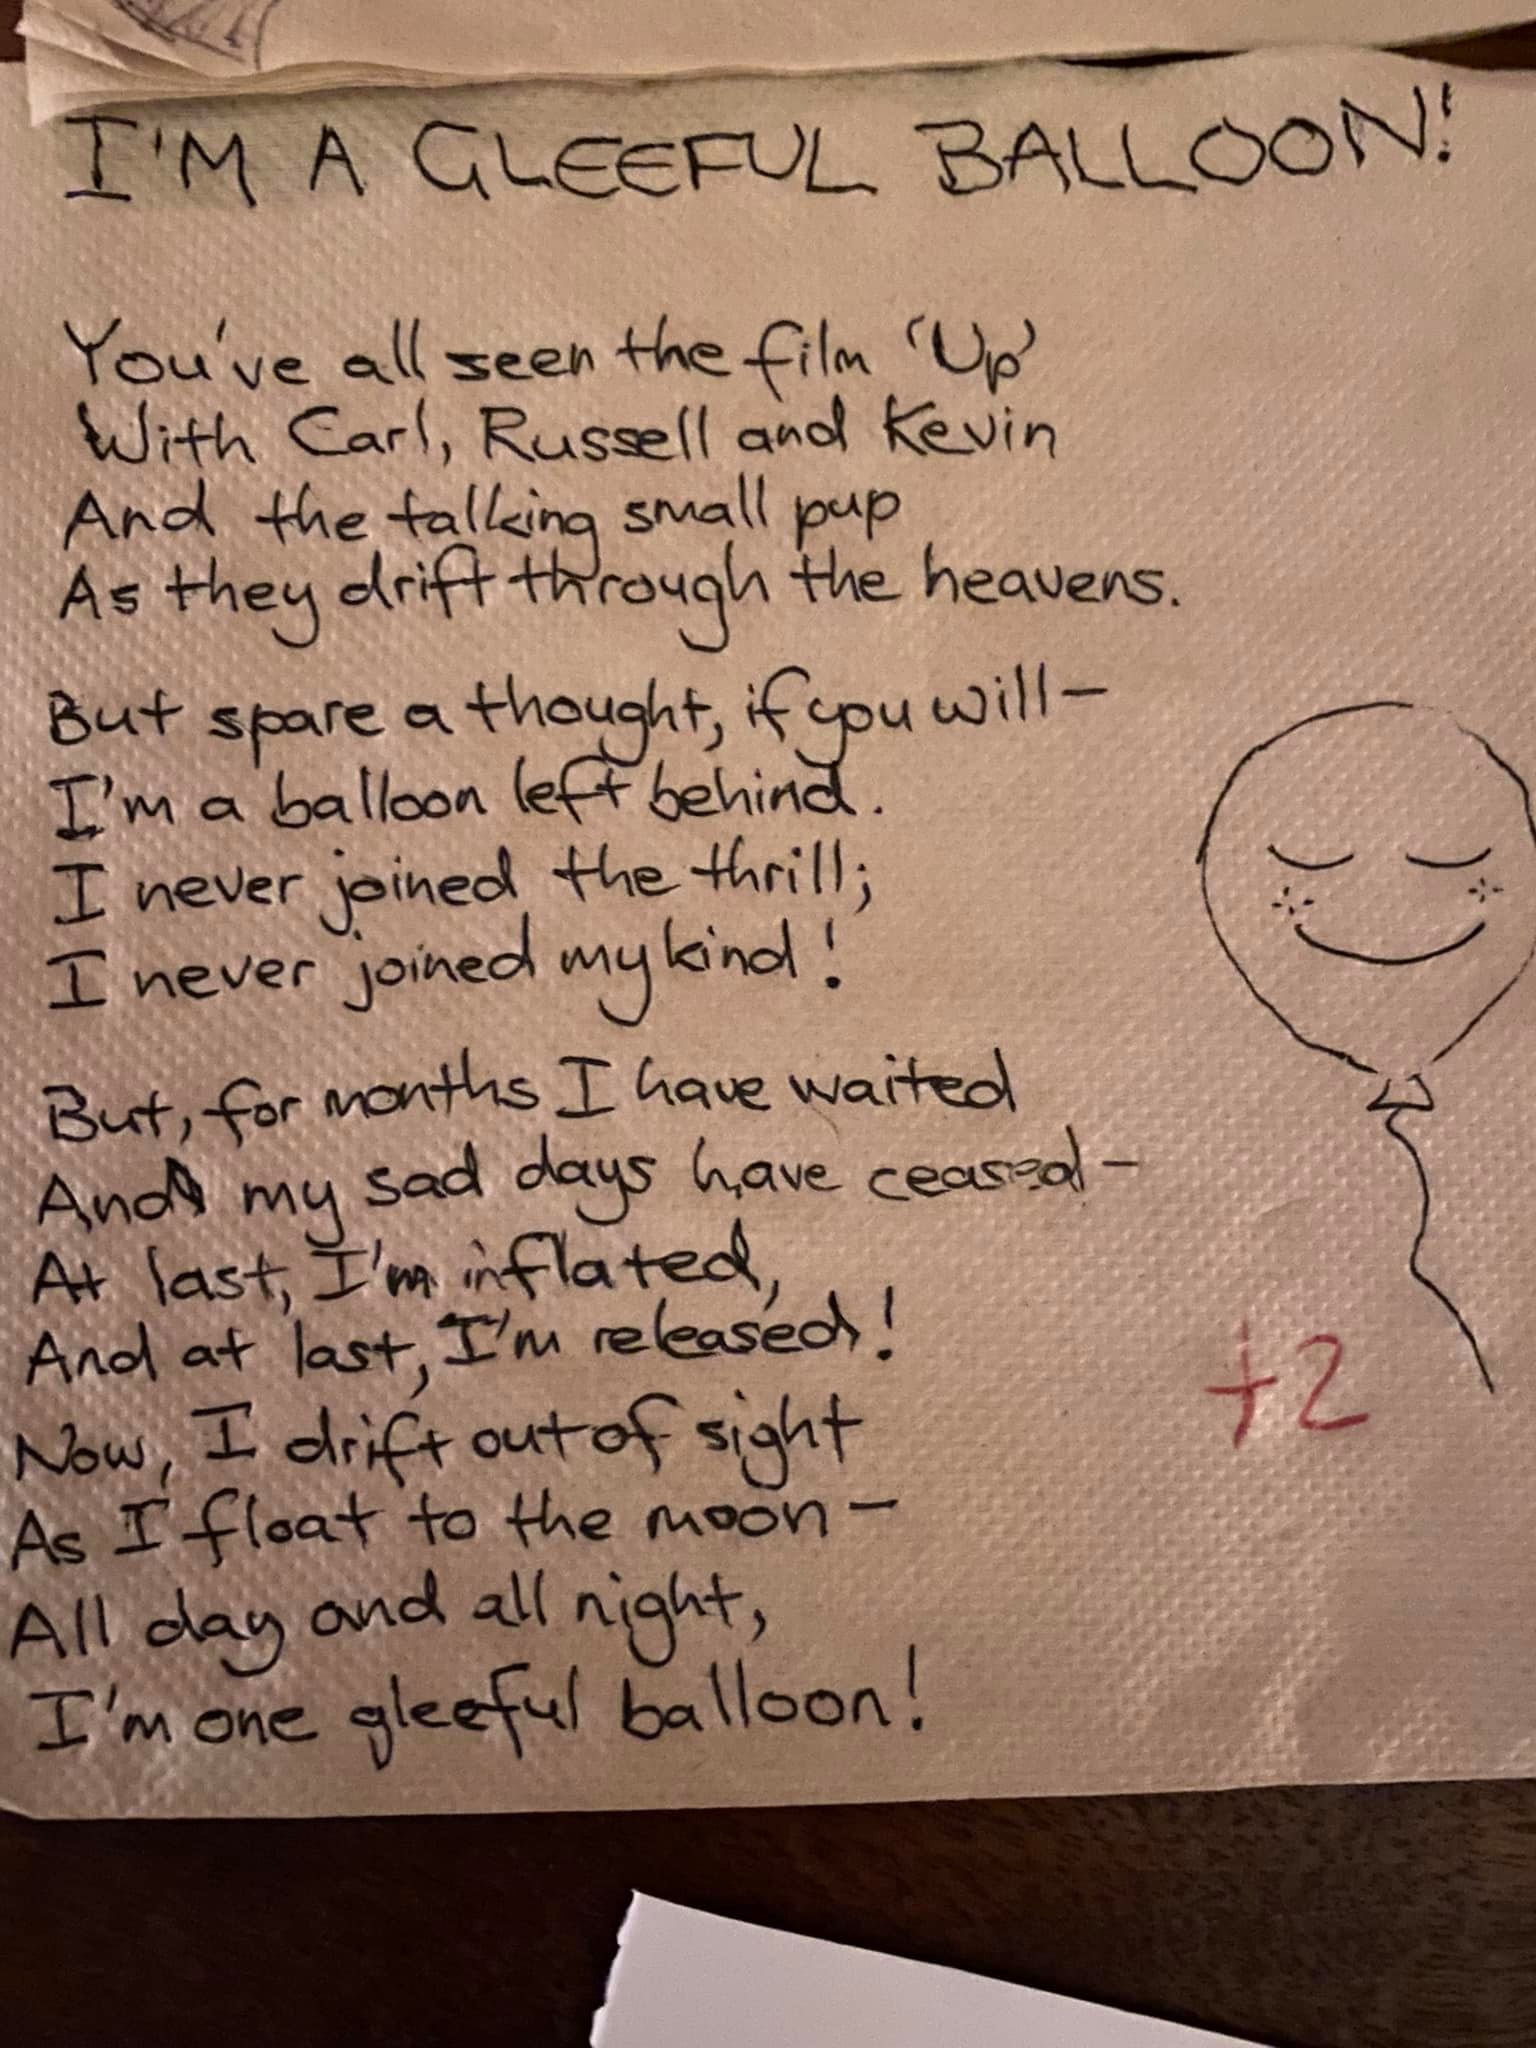 I'M A GLEEFUL BALLOON!
You've all seen the film 'Up'
With Carl, Russell and Kevin
And the talking small pup
As they drift through the heavens.
But spare a thought, if you will-
I'm a balloon left behind.
I never joined the thrill;
I never joined my kind!
But, for months I have waited
And my sad days have ceased-
At last, I'm inflated,
And at last, I'm released!
Now, I drift out of sight
As I float to the moon-
All day and all night,
I'm one gleeful balloon!
+2